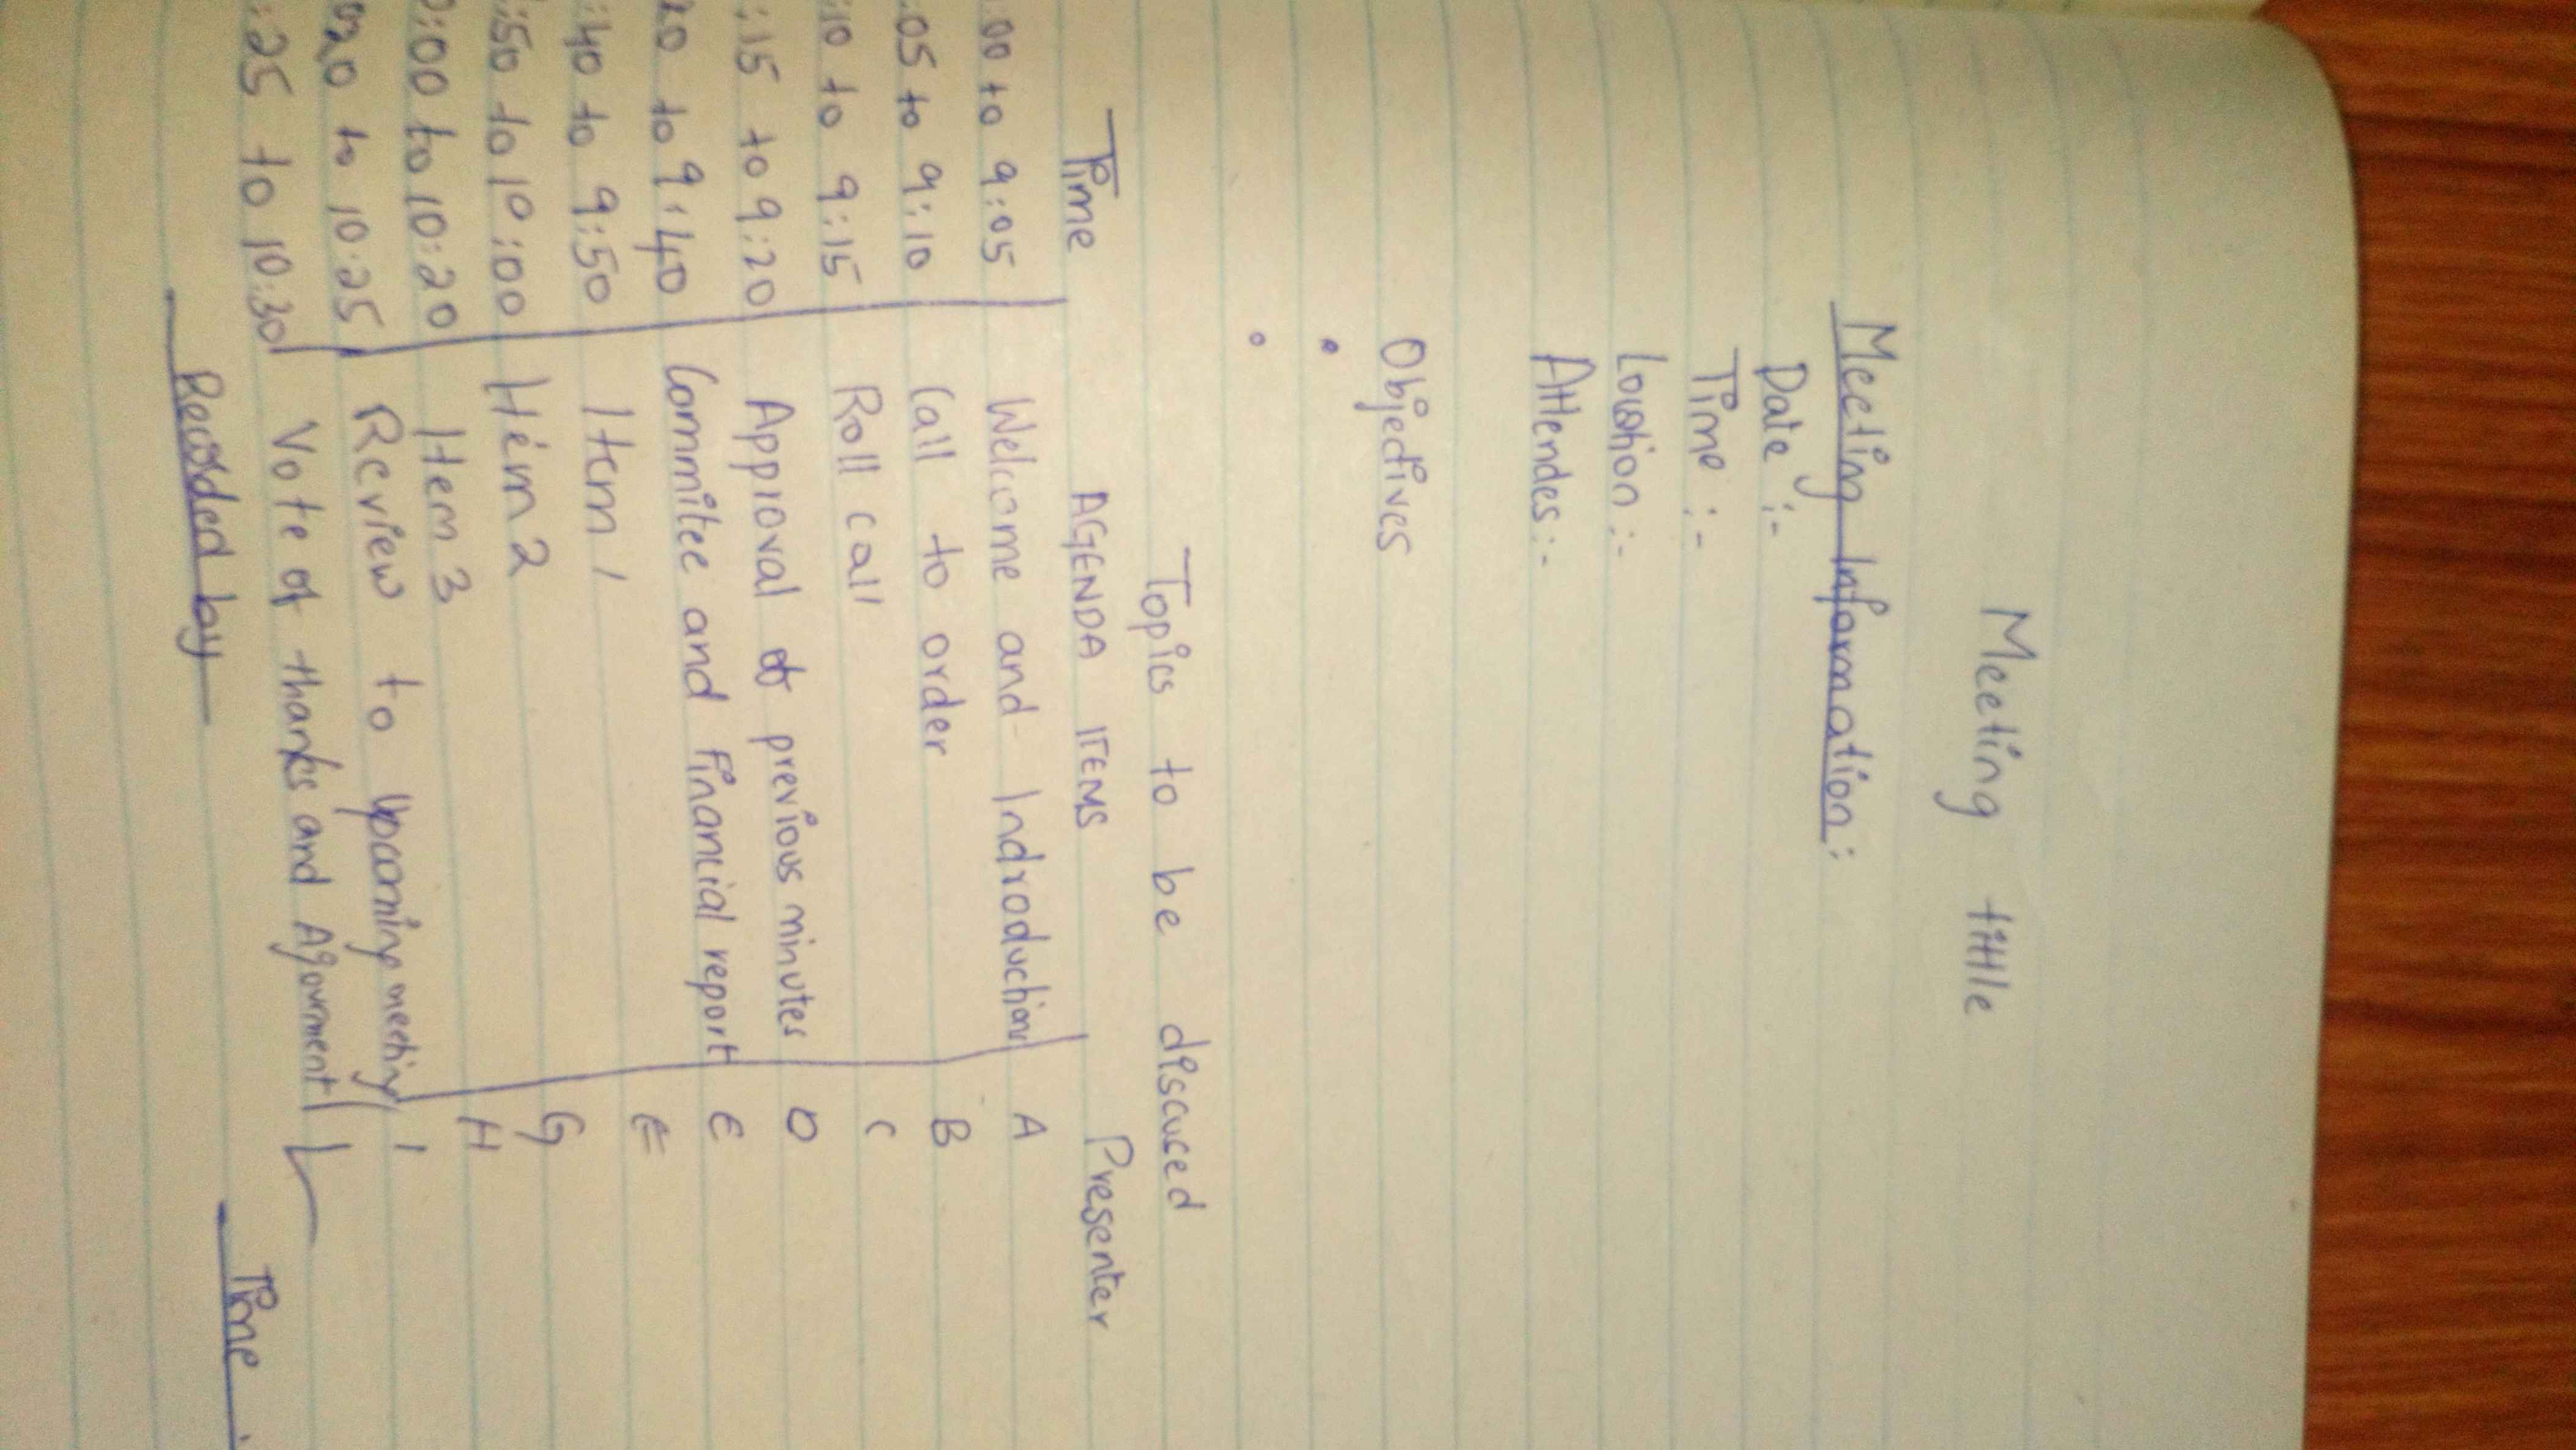 Meeting tittle
Meeting Information:
Date :-
Time :-
Location :-
Attendes :-
Objectives
Topics to be discuced
Time AGENDA ITEMS Presenter
:00 to 9:05 Welcome and Indroduction A
:05 to 9:10 Call to order B
:10 to 9:15 Roll call C
:15 to 9:20 Approval of previous minutes D
20 to 9:40 Commitee and Financial report E
:40 to 9:50 Item 1
:50 to 10:00 Item 2 G
:00 to 10:20 Item 3 H
20 to 10:25 Review to Upcoming meeting I
:25 to 10:30 Vote of thanks and
Recorded by Time